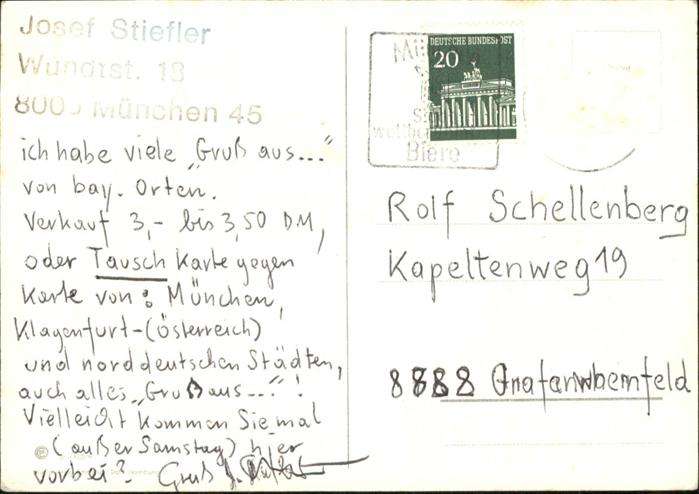 Josef Stiefler
Wundtst. 18
8000 München 45
ich habe viele „Gruß aus..."
von bay. Orten.
Verkauf 3,- bis 3,50 DM,
oder Tausch Karte gegen
Karte von: München,
Klagenfurt-(Österreich)
und norddeutschen Städten,
auch alles „Gruß aus...."!
Vielleicht kommen Sie mal
(außer Samstag) hier
vorbei? Gruß J.
DEUTSCHE BUNDESPOST
20
Biere
Rolf Schellenberg
Kapeltenweg 19
8